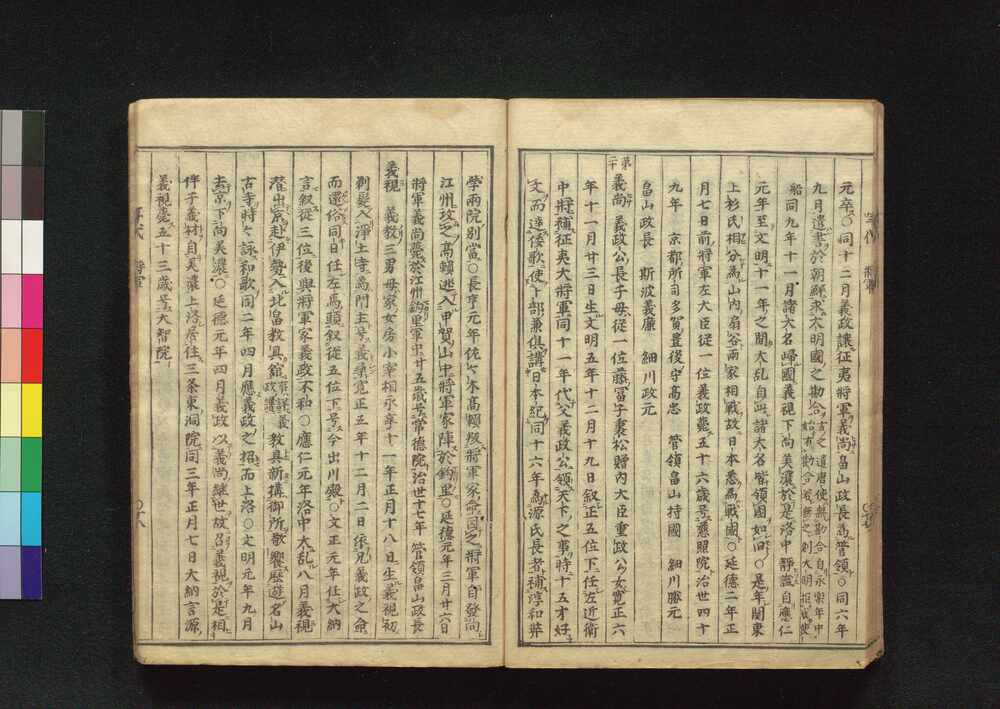 元卒○同十二月義政讓征夷將軍義尚畠山政長為管領○同六年
九月遣書於朝鮮求大明國之勘合
船同九年十一月諸大名歸國義視下向美濃於是洛中靜謐自應仁
元年至文明十一年之間大乱自此諸大名皆領國如旧○是年関東
上杉氏相分為山内扇谷兩家相戰故日本悉為戰國○延德二年正
月七日前將軍左大臣從一位義政薨五十六歳号慈照院治世四十
九年 京都所司多賀豊後守高忠 管領畠山持國 細川勝元
畠山政長 斯波義廉 細川政元
義尚 義政公長子母從一位藤冨子裏松贈内大臣重政公女寛正六
年十一月廿三日生文明五年十二月十九日叙正五位下任左近衛
中將補征夷大將軍同十一年代父義政公領天下之事時十五才好
文而達倭歌使卜部兼倶講日本紀同十六年為源氏長者補淳和奨
學兩院別當○長亨元年佐々木高頼叛將軍家命因之將軍自發向
江州攻之高頼逃入甲賀山中將軍家陣於鈎里○延德元年三月廿六日
將軍義尚薨於江州鈎里軍中廿五歳号常德院治世十七年 管領畠山政長
義視 義教三男母家女房小宰相永享十一年正月十八日生義視初
剃髪入淨土寺為門主号義尋寛正五年十二月二日依兄義政之命
而還俗同日任左馬頭叙從五位下号今出川殿○文正元年任大納
言叙從三位後與將軍家義政不和○應仁元年洛中大乱八月義視
潜出京赴伊勢入北畠教具館 教具新搆御所敬饗歴遊名山
古寺時々詠和歌同二年四月應義政之招而上洛○文明元年九月
去京下向美濃○延德元年四月義政以義尚継世故召義視於是相
伴子義材自美濃上洛居住三条東洞院同三年正月七日大納言源
義視薨五十三歳号大智院